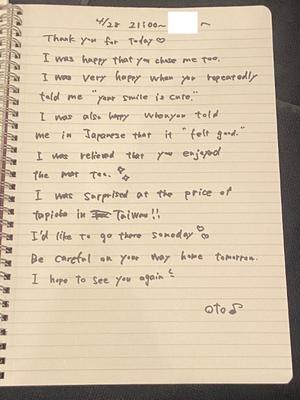 4/28 21:00~
Thank you for today♡
I was happy that you chose me too.
I was very happy when you repeatedly
told me "your smile is cute."
I was also happy when you told
me in Japanese that it "felt good."
I was relieved that you enjoyed
the mat too.
I was surprised at the price of
tapioka in Taiwan!!
I'd like to go there someday♡
Be careful on your way home tomorrow.
I hope to see you again